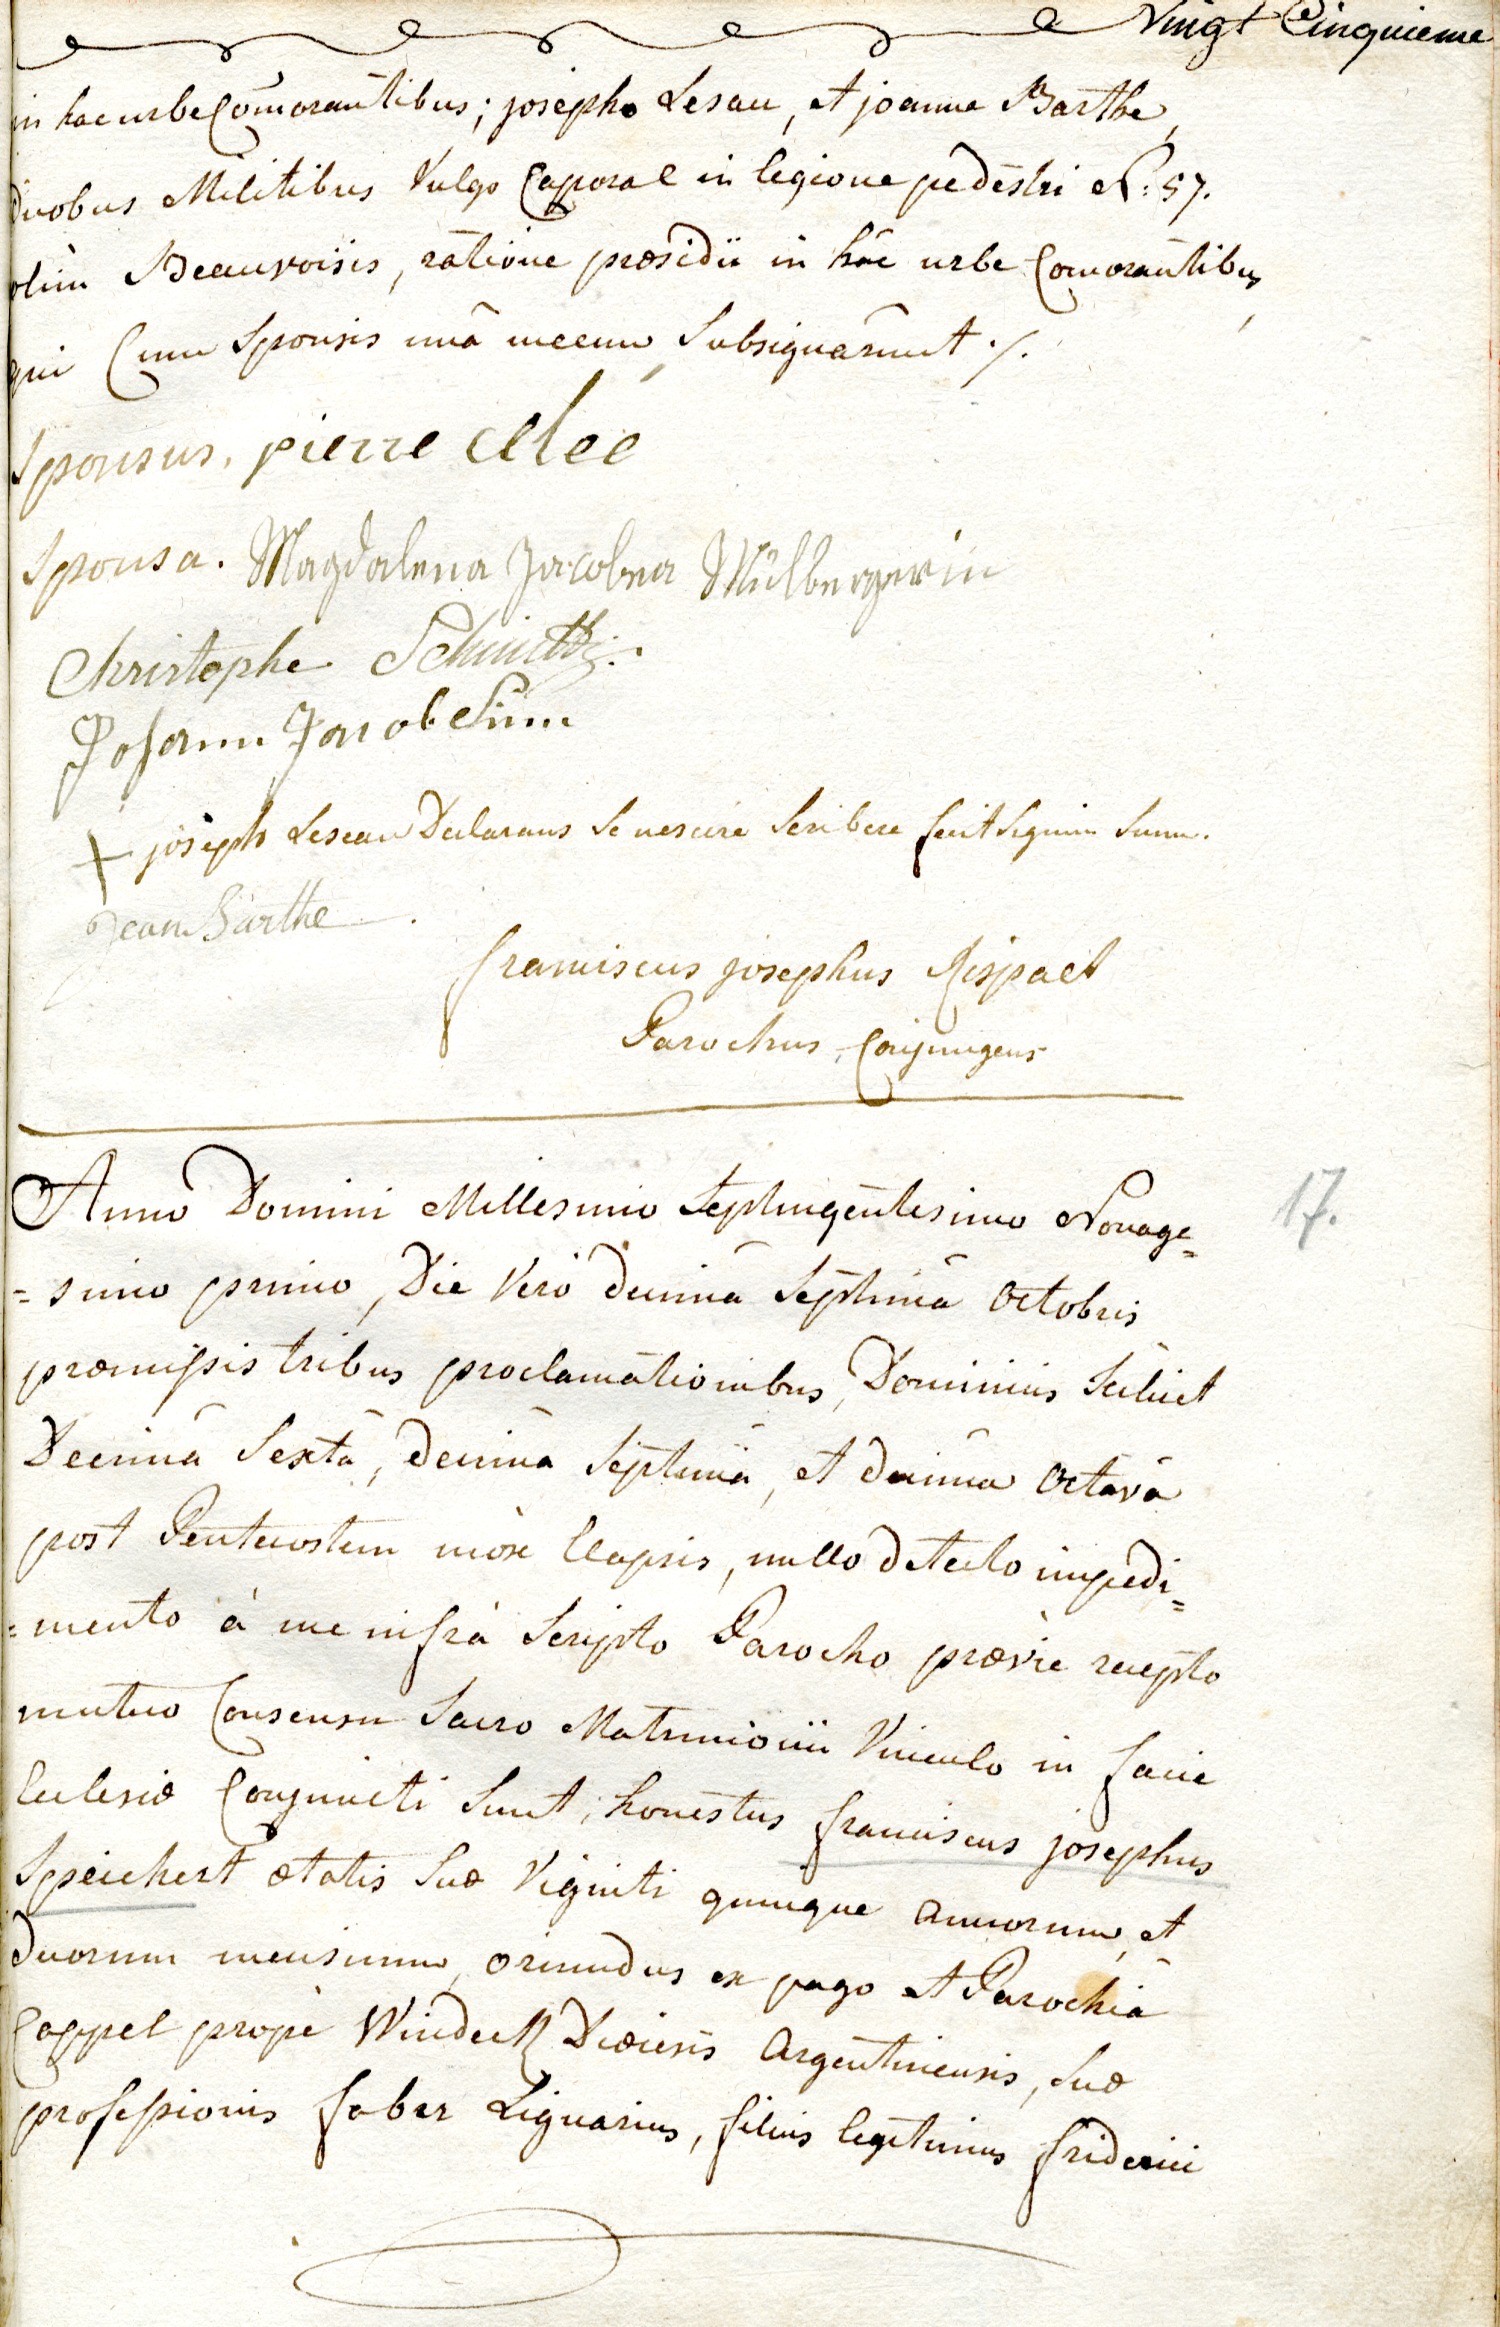 Vingt Cinquieme
in hac urbe Comorantibus; josepho Lesau, et joanne Barthe,
Duobus Militibus Vulgo Caporal in legione pedestri N: 57.
olim Beauvoisis, ratione præsidii in hâc urbe Comorantibus,
qui Cum Sponsis unâ mecum Subsignârunt ./.
Sponsus. pierre
Sponsa. Magdalena Jacobea Mülbergerin
Christophe
Johann Jacob
+ joseph Leseau Declarans Se nescire Scribere fecit Signum Suum.
Jean Barthe
franciscus josephus Rispaet
Parochus Conjungens
Anno Domini Millesimo Septingentesimo Nonage=
17.
=simo primo, Die Verò decimâ Septimâ Octobris
præmissis tribus proclamationibus, Dominicis Scilicet
Decimâ Sextâ, decimâ Septimâ, et decimâ Octavâ
post Pentecosten mòx Elapsis, nullo detecto impedi=
=mento à me infrà Scripto Parocho prævie recepto
mutuo Consensu Sacro Matrimonii Vinculo in facie
Ecclesiæ Conjuncti Sunt; honestus franciscus josephus
Speichert ætatis Suæ Viginti quinque annorum, et
duorum mensium, oriundus ex pago et Parochiâ
Cappel propè Windeck Diœcesis Argentinensis, Suæ
professionis faber Lignarius, filius legitimus friderici